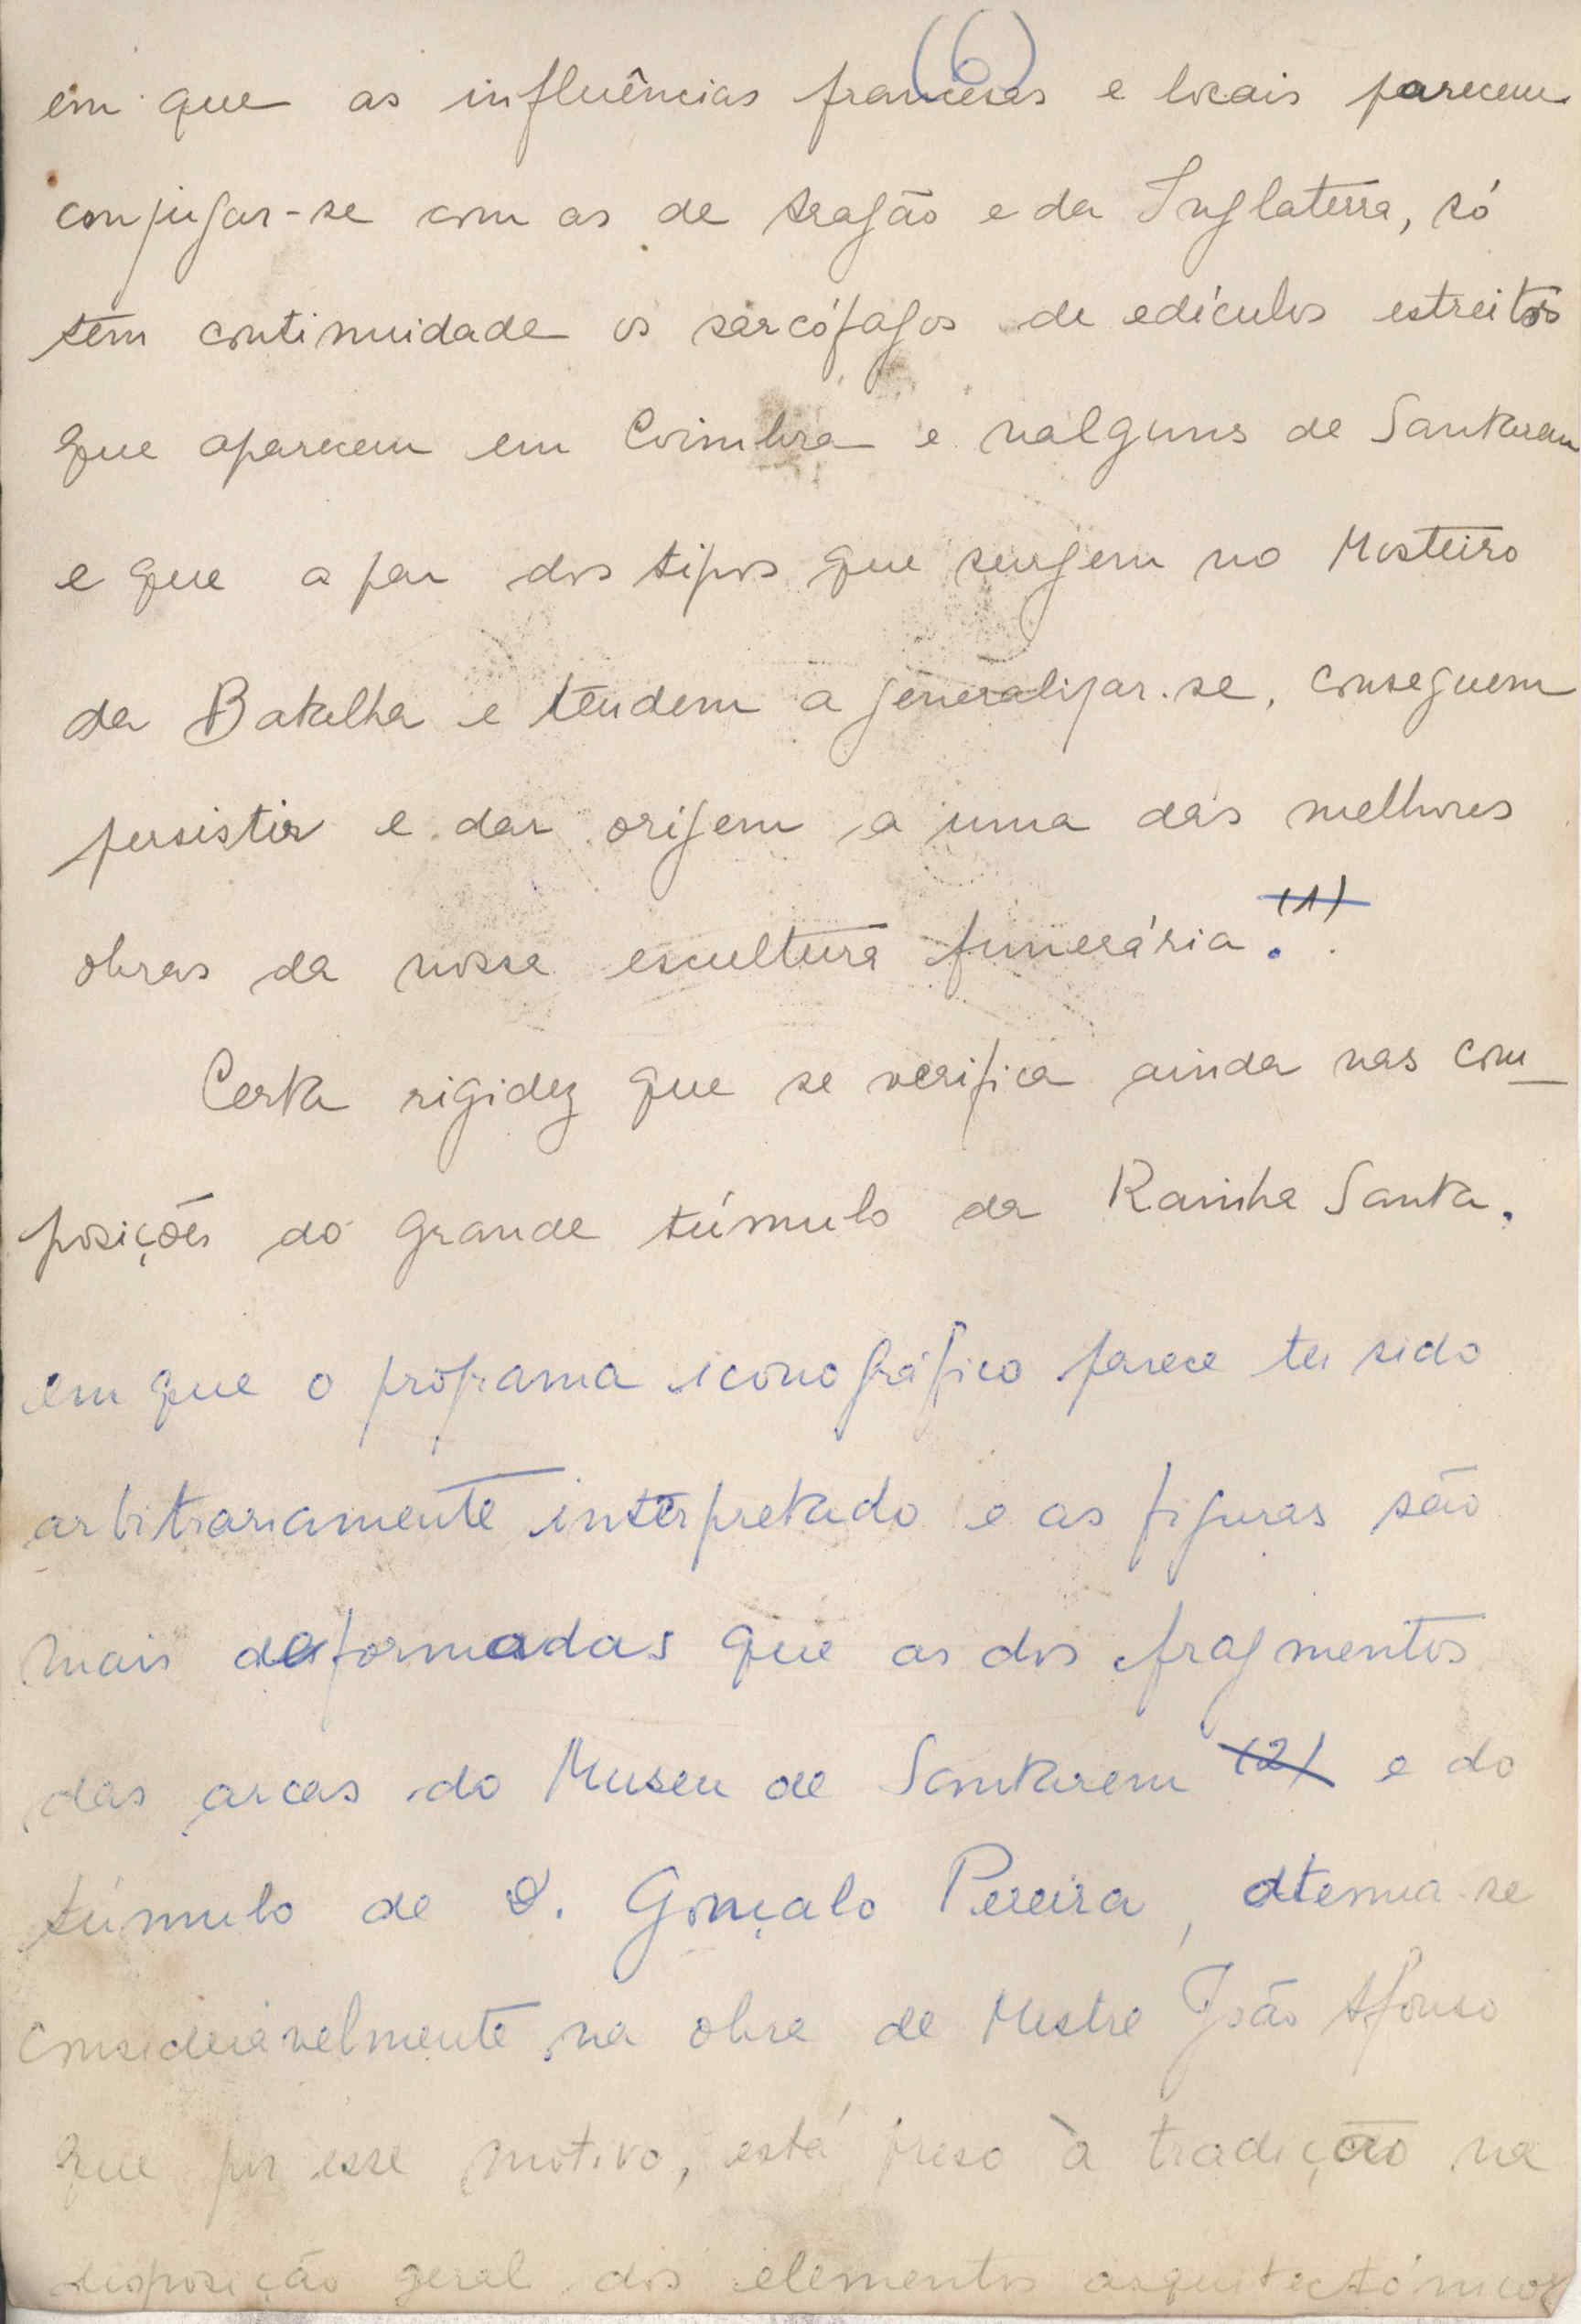 (6)
em que as influências francesas e locais parecem
conjugar-se com as de Aragão e da Inglaterra, só
têm continuidade os sarcófagos de edículos estreitos
que aparecem em Coimbra e nalguns de Santarem
e que a par dos tipos que surgem no Mosteiro
da Batalha e tendem a generalizar-se, conseguem
persistir e dar origem a uma das melhores
obras da nossa escultura funerária (1).
Certa rigidez que se verifica ainda nas com-
posições do grande túmulo da Rainha Santa,
em que o programa iconográfico parece ter sido
arbitrariamente interpretado e as figuras são
mais deformadas que as dos fragmentos
das arcas do Museu de Santarem (2) e do
túmulo de D. Gonçalo Pereira, atenua-se
consideravelmente na obra de Mestre João Afonso
que por esse motivo, está preso à tradição na
disposição geral dos elementos arquitectónicos